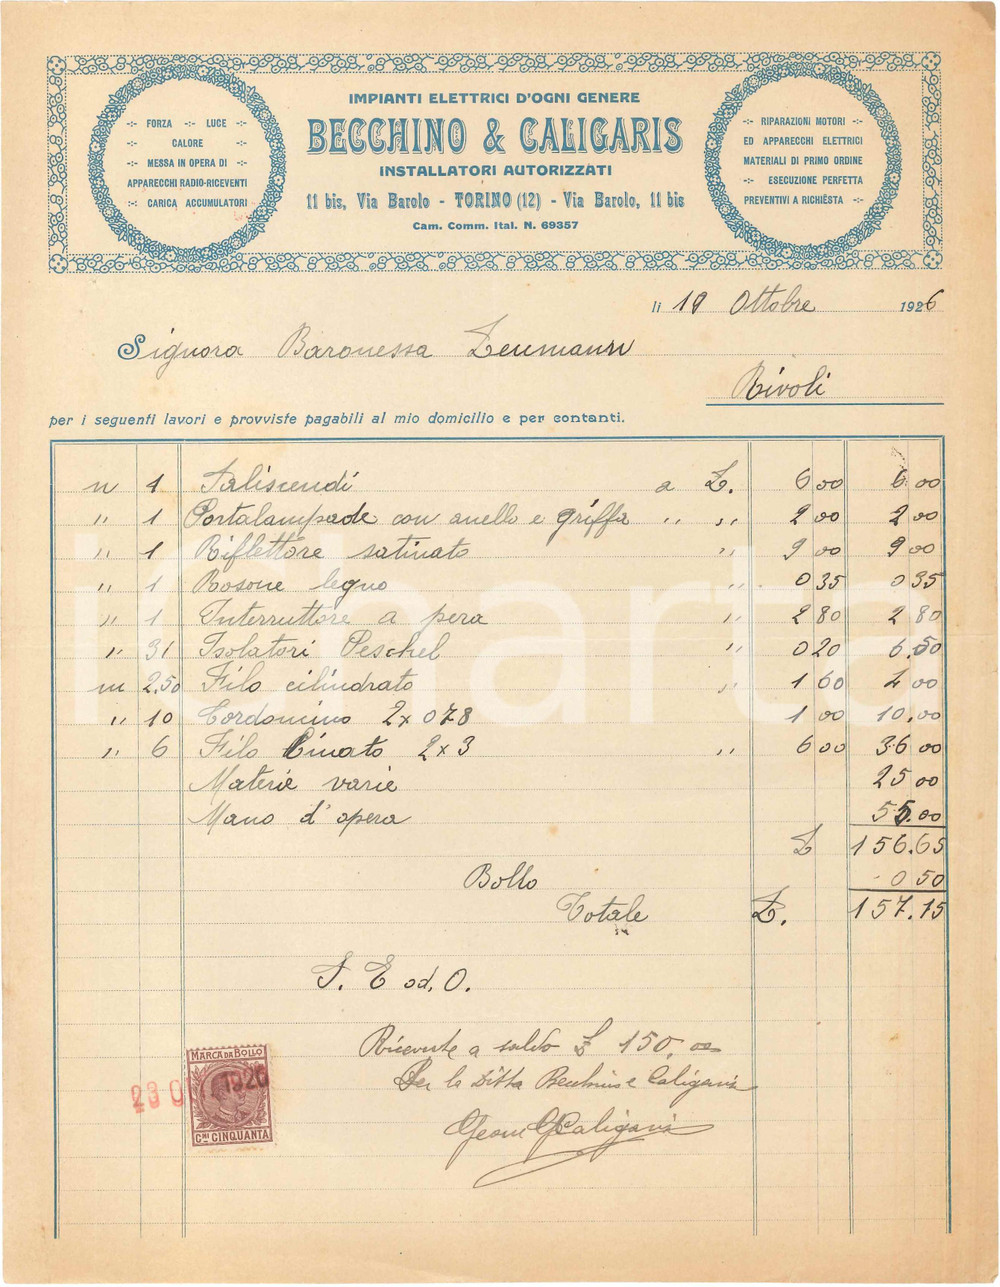 IMPIANTI ELETTRICI D'OGNI GENERE
BECCHINO & CALIGARIS
INSTALLATORI AUTORIZZATI
11 bis, Via Barolo - TORINO (12) - Via Barolo, 11 bis
Cam. Comm. Ital. N. 69357
-:- FORZA -:- LUCE -:-
-:- CALORE -:-
-:- MESSA IN OPERA DI -:-
APPARECCHI RADIO-RICEVENTI
-:- CARICA ACCUMULATORI
-:- RIPARAZIONI MOTORI -:-
ED APPARECCHI ELETTRICI
MATERIALI DI PRIMO ORDINE
-:- ESECUZIONE PERFETTA
PREVENTIVI A RICHIESTA -:-
li 19 Ottobre 1926
Signora Baronessa Leumann
Rivoli
per i seguenti lavori e provviste pagabili al mio domicilio e per contanti.
n 1 Saliscendi a L. 6 00 6 00
" 1 Portalampade con anello e griffa " " 2 00 2 00
" 1 Riflettore satinato " 9 00 9 00
" 1 Rosone legno " 0 35 0 35
" 1 Interruttore a pera " 2 80 2 80
" 31 Isolatori Peschel " 0 20 6.50
m 2.50 Filo cilindrato " 1 60 4 00
" 10 Cordoncino 2 x 078 1 00 10.00
" 6 Filo 2 x 3 " 6 00 36 00
Materie varie 25 00
Mano d'opera 55.00
L 156.65
Bollo 0 50
Totale L. 157.15
S. E od. O.
Ricevute a saldo L 150,00
Per la Ditta Becchino e Caligaris
Geom Caligaris
MARCA DA BOLLO
CMI CINQUANTA
23 O 1926
ilCharta